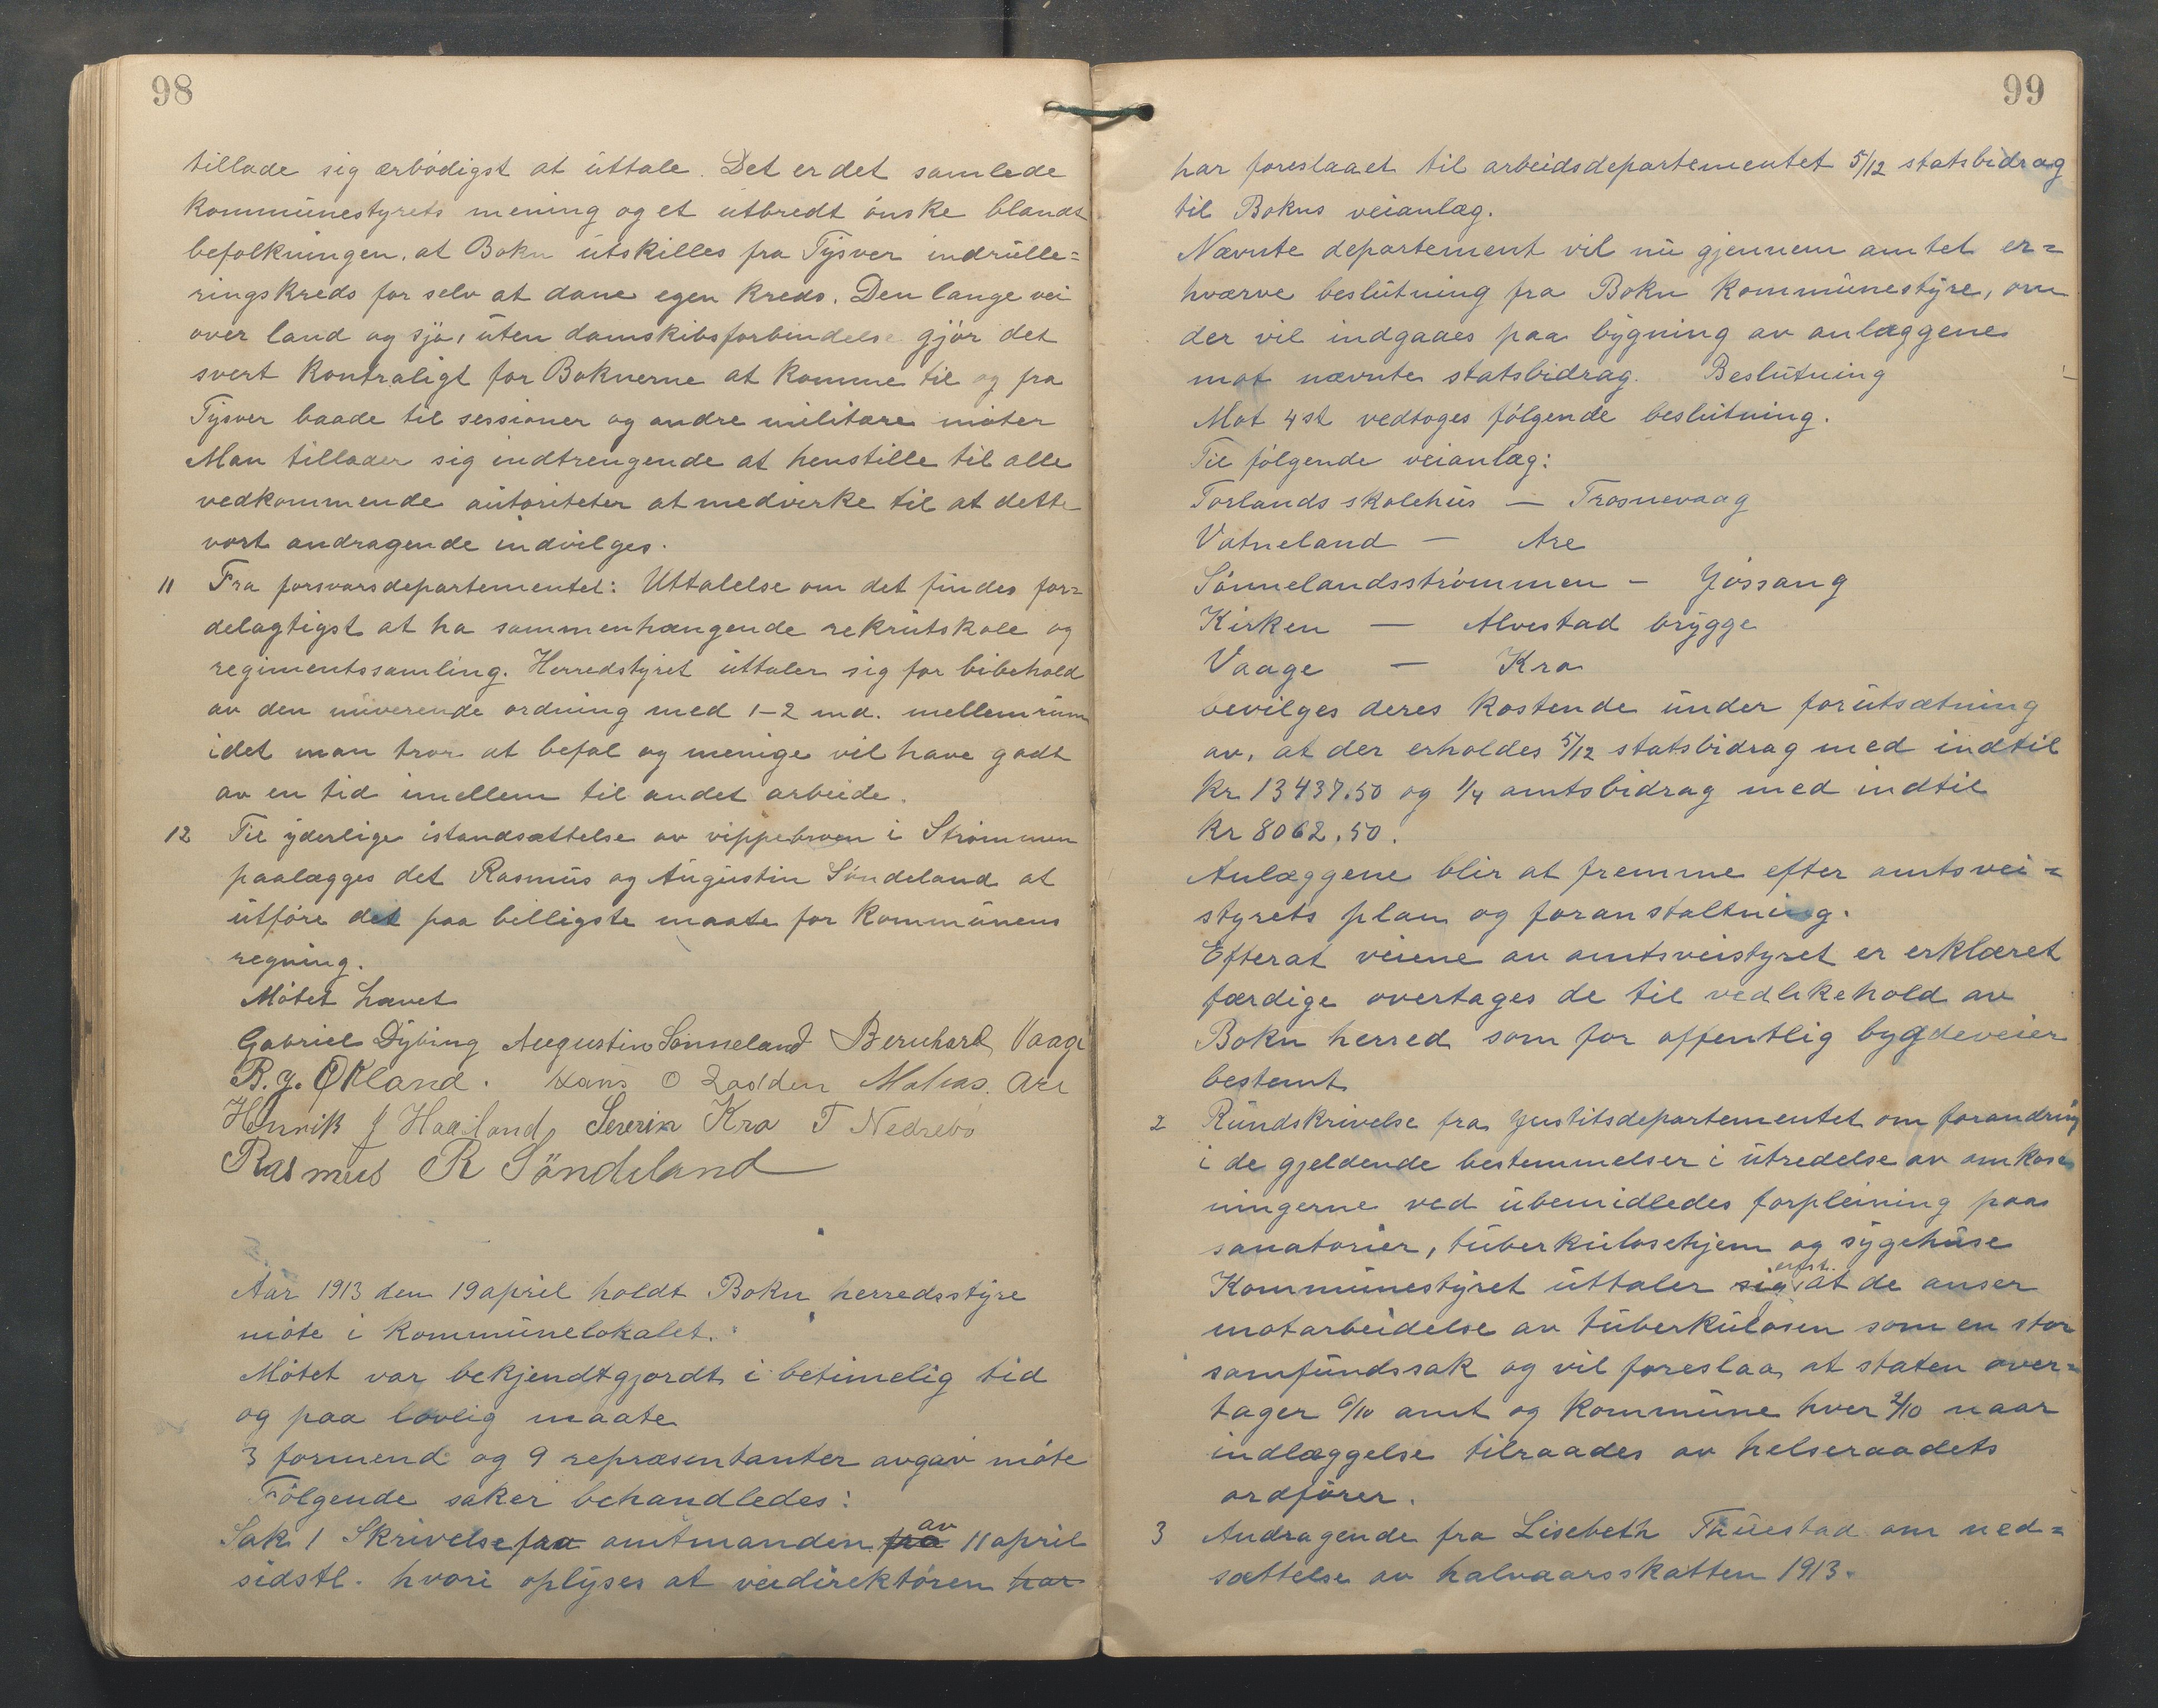 98
tillade sig ærbödigst at uttale. Det er det samlede
kommunestyrets mening og et utbredt önske blandt
befolkningen, at Bokn utskilles fra Tysver indrulle=
ringskreds for selv at dane egen kreds. Den lange vei
over land og sjø, uten damskibsforbindelse gjör det
svert kontraligt for Boknerne at komme til og fra
Tysver baade til sessioner og andre militære möter
Man tillader sig indtrengende at henstille til alle
vedkommende autoriteter at medvirke til at dette
vort andragende indvilges.
11 Fra forsvarsdepartementet: Uttalelse om det findes for=
delagtigst at ha sammenhængende rekrutskole og
regimentssamling. Herredstyret uttaler sig for bibehold
av den nuverende ordning med 1-2 md. mellemrum
idet man tror at befal og menige vil have godt
av en tid imellem til andet arbeide.
12 Til yderlige istandsættelse av vippebroen i Strömmen
paalægges det Rasmus og Augustin Söndeland at
utföre det paa billigste maate for kommunens
regning.
Mötet hævet
Gabriel Dybing Augustin Sönneland Bernhard Vaage
B. J. Økland. Hans O Lodden Matias Are
Henrik J Haaland, Severin Kro T Nedrebö
Rasmus R Söndeland
Aar 1913 den 19 april holdt Bokn herredsstyre
möte i kommunelokalet.
Mötet var bekjendtgjordt i betimelig tid
og paa lovlig maate
3 formend og 9 repræsentanter avgav möte
Fölgende saker behandledes:
Sak 1 Skrivelse fra amtmanden fra av 11 april
sidstl. hvori oplyses at veidirektören har
99
har foreslaaet til arbeidsdepartementet 5/12 statsbidrag
til Bokns veianlæg.
Nævnte departement vil nu gjennem amtet er=
hværve beslutning fra Bokn kommunestyre, om
der vil indgaaes paa bygning av anlæggene
mot nævnte statsbidrag. Beslutning
Mot 4 st vedtoges fölgende beslutning.
Til fölgende veianlæg:
Torlands skolehus — Trosnevaag
Vatneland — Are
Sönnelandsströmmen — Jössang
Kirken — Alvestad brygge
Vaage — Kro
bevilges deres kostende under forutsætning
av, at der erholdes 5/12 statsbidrag med indtil
kr 13437.50 og 1/4 amtsbidrag med indtil
kr 8062.50.
Anlæggene blir at fremme efter amtsvei=
styrets plan og foranstaltning.
Efterat veiene av amtsveistyret er erklæret
færdige overtages de til vedlikehold av
Bokn herred som for offentlig bygdeveier
bestemt
2 Rundskrivelse fra Justitsdepartementet om forandring
i de gjeldende bestemmelser i utredelse av omkost
ningerne ved ubemidledes forpleining paa
sanatorier, tuberkulosehjem og sygehuse
Kommunestyret uttaler sig at de anser
motarbeidelse av tuberkulosen som en stor
samfundssak og vil foreslaa at staten over=
tager 6/10 amt og kommune hver 2/10 naar
indlæggelse tilraades av helseraadets
ordförer.
3 Andragende fra Lisebeth Thuestad om ned=
sættelse av halvaarsskatten 1913.